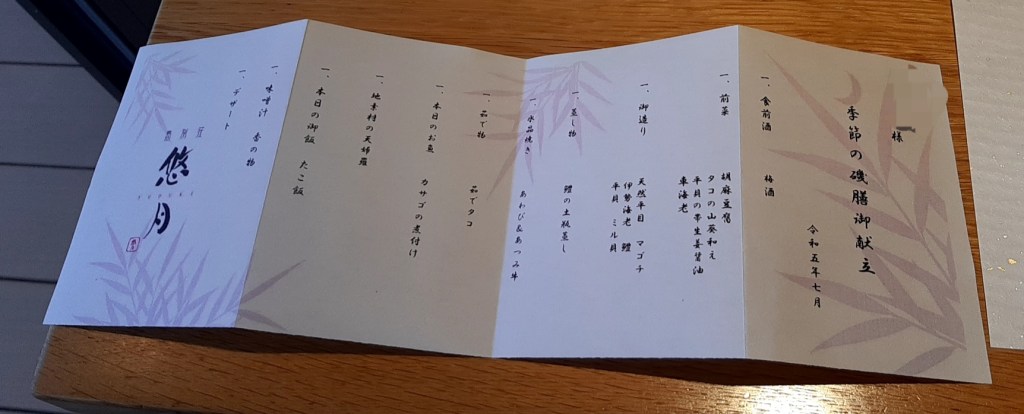 様
季節の磯膳御献立
令和五年七月
一、食前酒 梅酒
一、前菜 胡麻豆腐
タコの山葵和え
平貝の帯生姜醤油
車海老
一、御造り 天然平目 マゴチ
伊勢海老 鱧
平貝 ミル貝
一、蒸し物 鱧の土瓶蒸し
一、水晶焼き あわび&あつみ牛
一、茹で物 茹でタコ
一、本日のお魚 カサゴの煮付け
一、地素材の天婦羅
一、本日の御飯 たこ飯
一、味噌汁 香の物
一、デザート
悠月